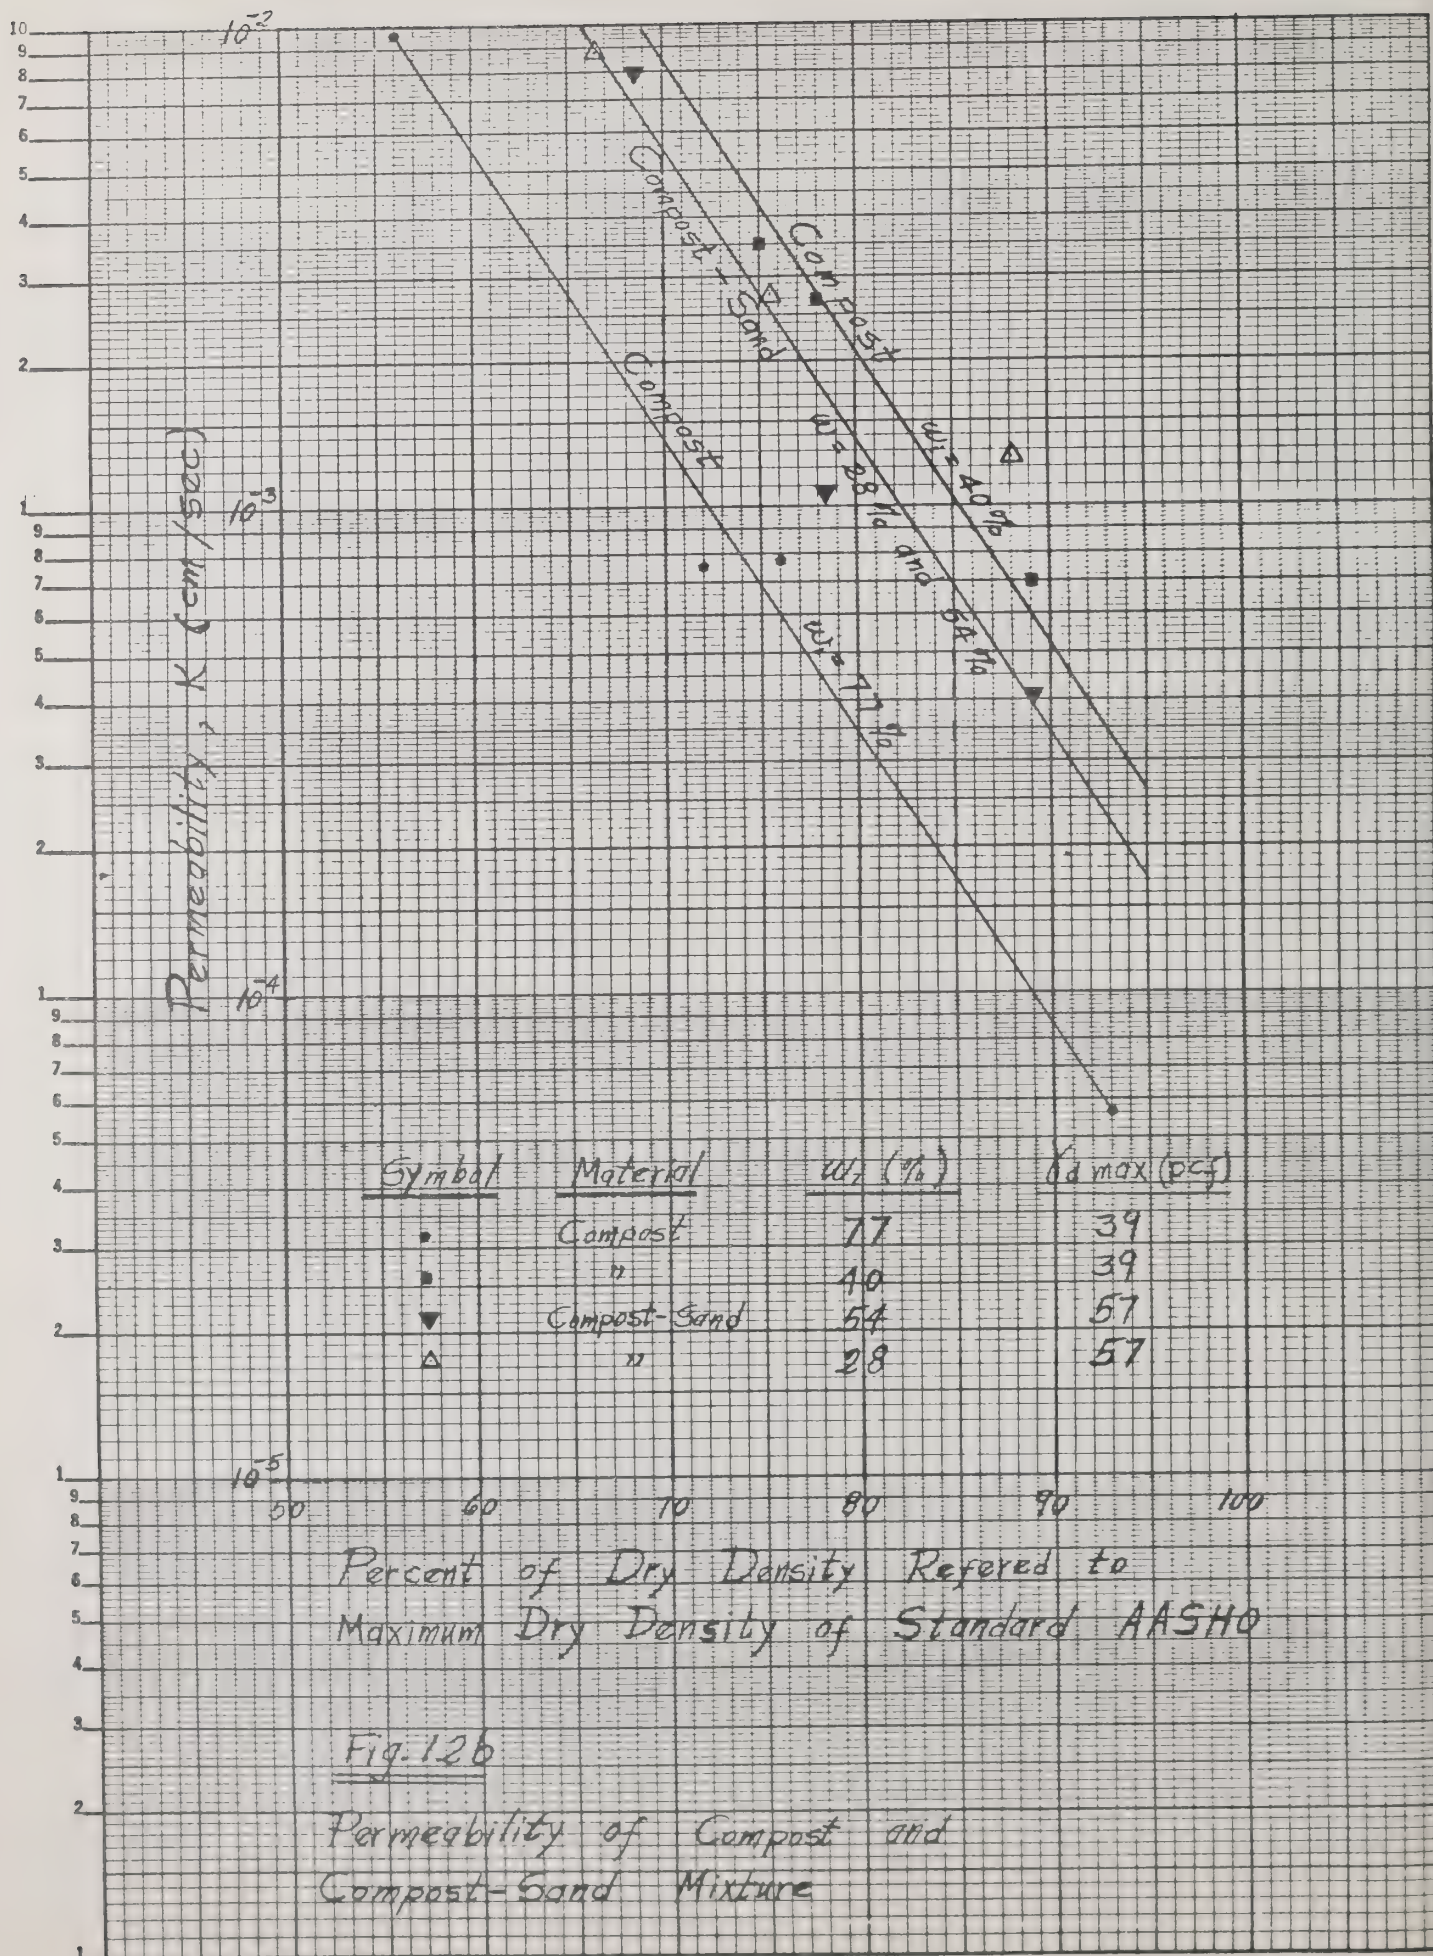 10
9
8
7
6
5
4
3
2
1
9
8
7
6
5
4
3
2
1
9
8
7
6
5
4
3
2
1
9
8
7
6
5
4
3
2
1
10⁻²
10⁻³
10⁻⁴
10⁻⁵
Permeability, K (cm/sec)
Compost - Sand
w₁ = 28 % and 54 %
Compost
w₁ = 40 %
Compost
w₁ = 77 %
Symbol Material w₁ (%) γd max (pcf)
• Compost 77 39
■ " 40 39
▼ Compost-Sand 54 57
△ " 28 57
50 60 70 80 90 100
Percent of Dry Density Refered to
Maximum Dry Density of Standard AASHO
Fig. 12b
Permeability of Compost and
Compost-Sand Mixture